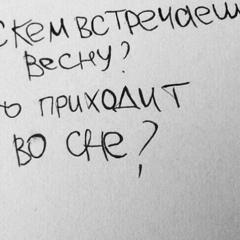 С КЕМ ВСТРЕЧАЕШ
ВЕСНУ?
ПРИХОДИТ
ВО СНЕ?